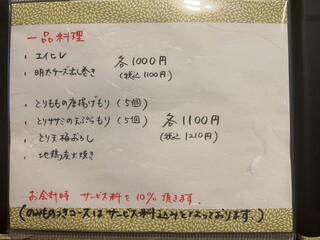 一品料理
・エイヒレ 各1000円
・明太チーズ出し巻き (税込1100円)
・とりももの唐揚げもり(5個)
・とりササミの天ぷらもり(5個) 各1100円
・とり天梅おろし (税込1210円)
・地鶏炭火焼き
お会計時 サービス料を10%頂きます.
(のみものつきコースはサービス料込みとなっております)